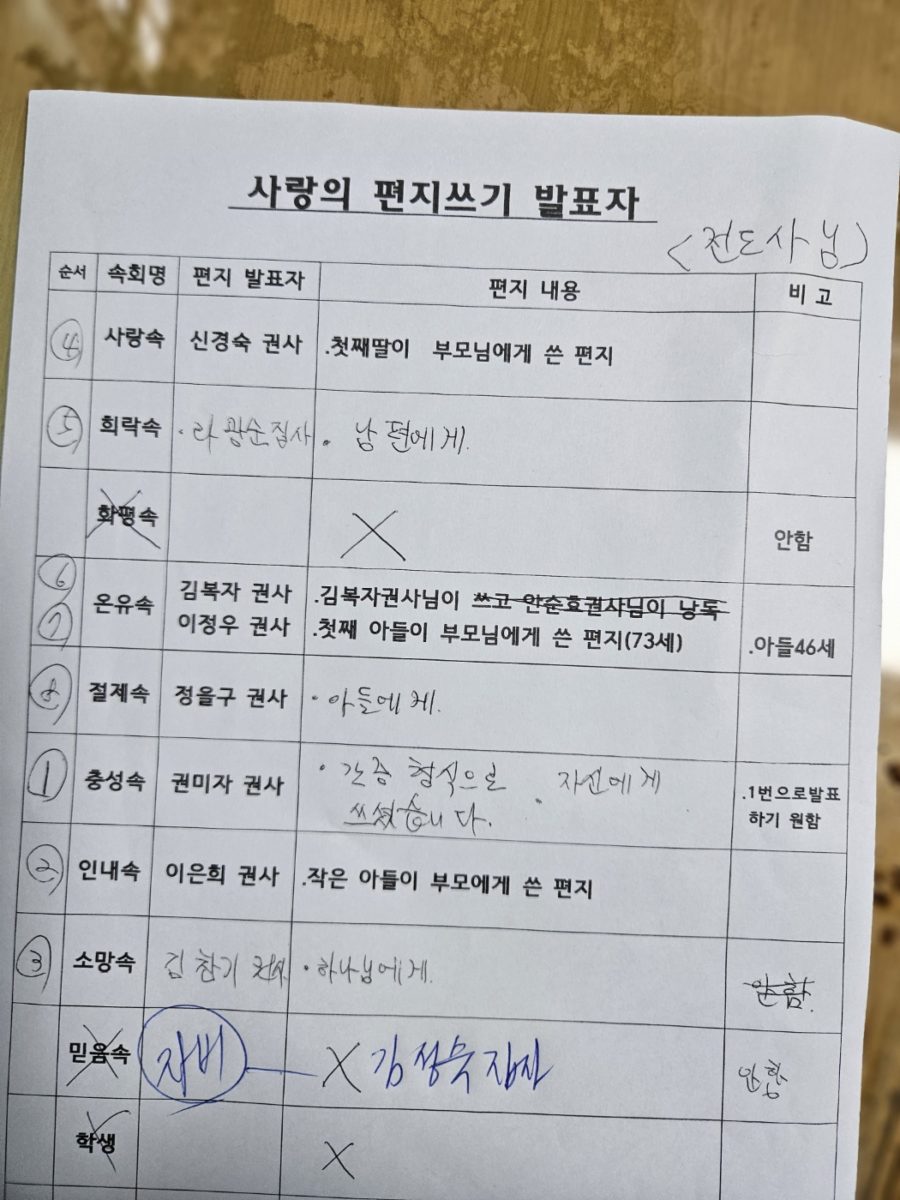 사랑의 편지쓰기 발표자
<전도사님>
순서 속회명 편지 발표자 편지 내용 비 고
④ 사랑속 신경숙 권사 .첫째딸이 부모님에게 쓴 편지
⑤ 희락속 ·라광순집사 . 남편에게.
화평속 X 안함
⑥ 온유속 김복자 권사 .김복자권사님이 쓰고 안순효권사님이 낭독
⑦ 이정우 권사 .첫째 아들이 부모님에게 쓴 편지(73세) .아들46세
⑧ 절제속 정을구 권사 ·아들에게.
① 충성속 권미자 권사 ·간증 형식으로 쓰셨습니다. ·자신에게 .1번으로발표
하기 원함
② 인내속 이은희 권사 .작은 아들이 부모에게 쓴 편지
③ 소망속 김찬기 권사 ·하나님에게. 안함.
믿음속 자비 X 김정숙집사 안함
학생 X